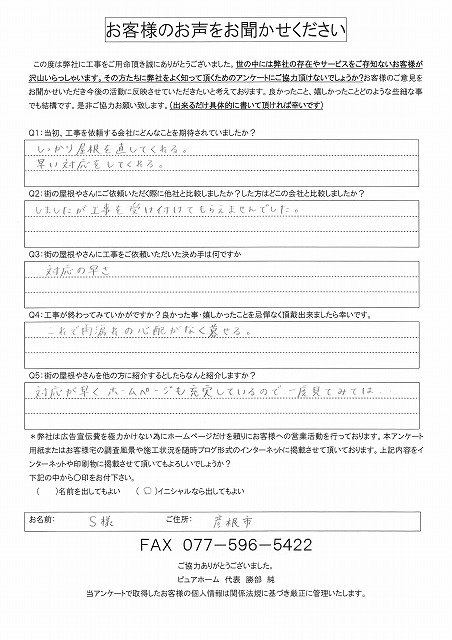 お客様のお声をお聞かせください
この度は弊社に工事をご用命頂き誠にありがとうございました。世の中には弊社の存在やサービスをご存知ないお客様が
沢山いらっしゃいます。その方たちに弊社をよく知って頂くためのアンケートにご協力頂けないでしょうか?お客様のご意見を
お聞かせいただき今後の活動に反映させていただきたいと考えております。良かったこと、嬉しかったことどのような些細な事
でも結構です。是非ご協力お願い致します。（出来るだけ具体的に書いて頂ければ幸いです）
Q1:当初、工事を依頼する会社にどんなことを期待されていましたか?
しっかり屋根を直してくれる。
早い対応をしてくれる。
Q2:街の屋根やさんにご依頼いただく際に他社と比較しましたか?した方はどこの会社と比較しましたか?
しましたが工事を受け付けてもらえませんでした。
Q3:街の屋根やさんに工事をご依頼いただいた決め手は何ですか
対応の早さ
Q4:工事が終わってみていかがですか?良かった事・嬉しかったことを忌憚なく頂戴出来ましたら幸いです。
これで雨漏れの心配がなく暮せる。
Q5:街の屋根やさんを他の方に紹介するとしたらなんと紹介しますか?
対応が早くホームページも充実しているので一度見てみては…
＊弊社は広告宣伝費を極力かけない為にホームページだけを頼りにお客様への営業活動を行っております。本アンケート
用紙またはお客様宅の調査風景や施工状況を随時ブログ形式のインターネットに掲載させて頂いております。上記内容をイ
ンターネットや印刷物に掲載させて頂いてもよろしいでしょうか?
下記の中から〇印をお付下さい。
（　）名前を出してもよい　（〇）イニシャルなら出してもよい
お名前: S様 ご住所: 彦根市
FAX 077－596－5422
ご協力ありがとうございました。
ピュアホーム 代表 勝部 純
当アンケートで取得したお客様の個人情報は関係法規に基づき厳正に管理いたします。